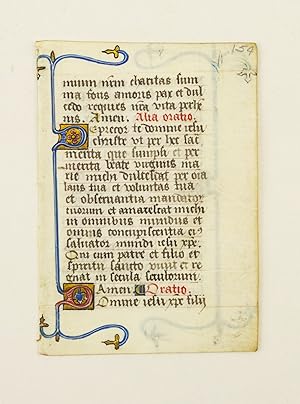 154
mum nem charitas sum
ma fons amoris pax et dul
cedo requies nra vita peren
nis. Amen. Alia oratio.
Deprecor te domine iesu
christe ut per hec sac
menta que sumpsi et per
merita beate virginis ma
rie michi dulcescat per oia
laus tua et voluntas tua
et observantia mandator
tuorum et amarescat michi
in omnibus mundus et
omnis concupiscentia ei
salvator mundi iesu xpe.
Qui cum patre et filio et
spiritu sancto vivit et re
gnat in secula seculorum.
Amen. Oratio.
Domine iesu xpe filij